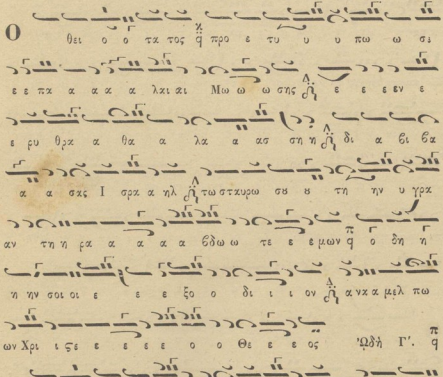 Ο θει ο ο τα τος προ ε τυ υ υ πω ω σε
ε ε πα α αα α λαι αι Μω ω ω σης ε ε ε εν ε
ε ρυ θρα α θα α λα α ασ ση η δι α βι βα
α α α σας Ι σρα α ηλ τω σταυρω σου ου τη ην υ γρα
αν τη η ρα α α α α βδω ω τε ε ε μων ο δη η
η ην σοι οι ε ε ε ξο ο δι ι ι ον α να α μελ πω
ων Χρι ι ςε ε ε ε ε ο ο Θε ε ε ος Ὠδὴ Γʹ.